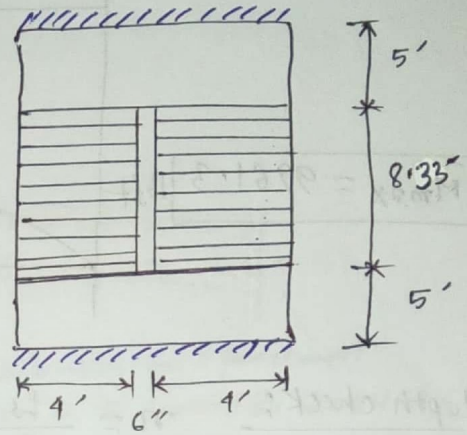 5'
8.33'
5'
4'
6"
4'